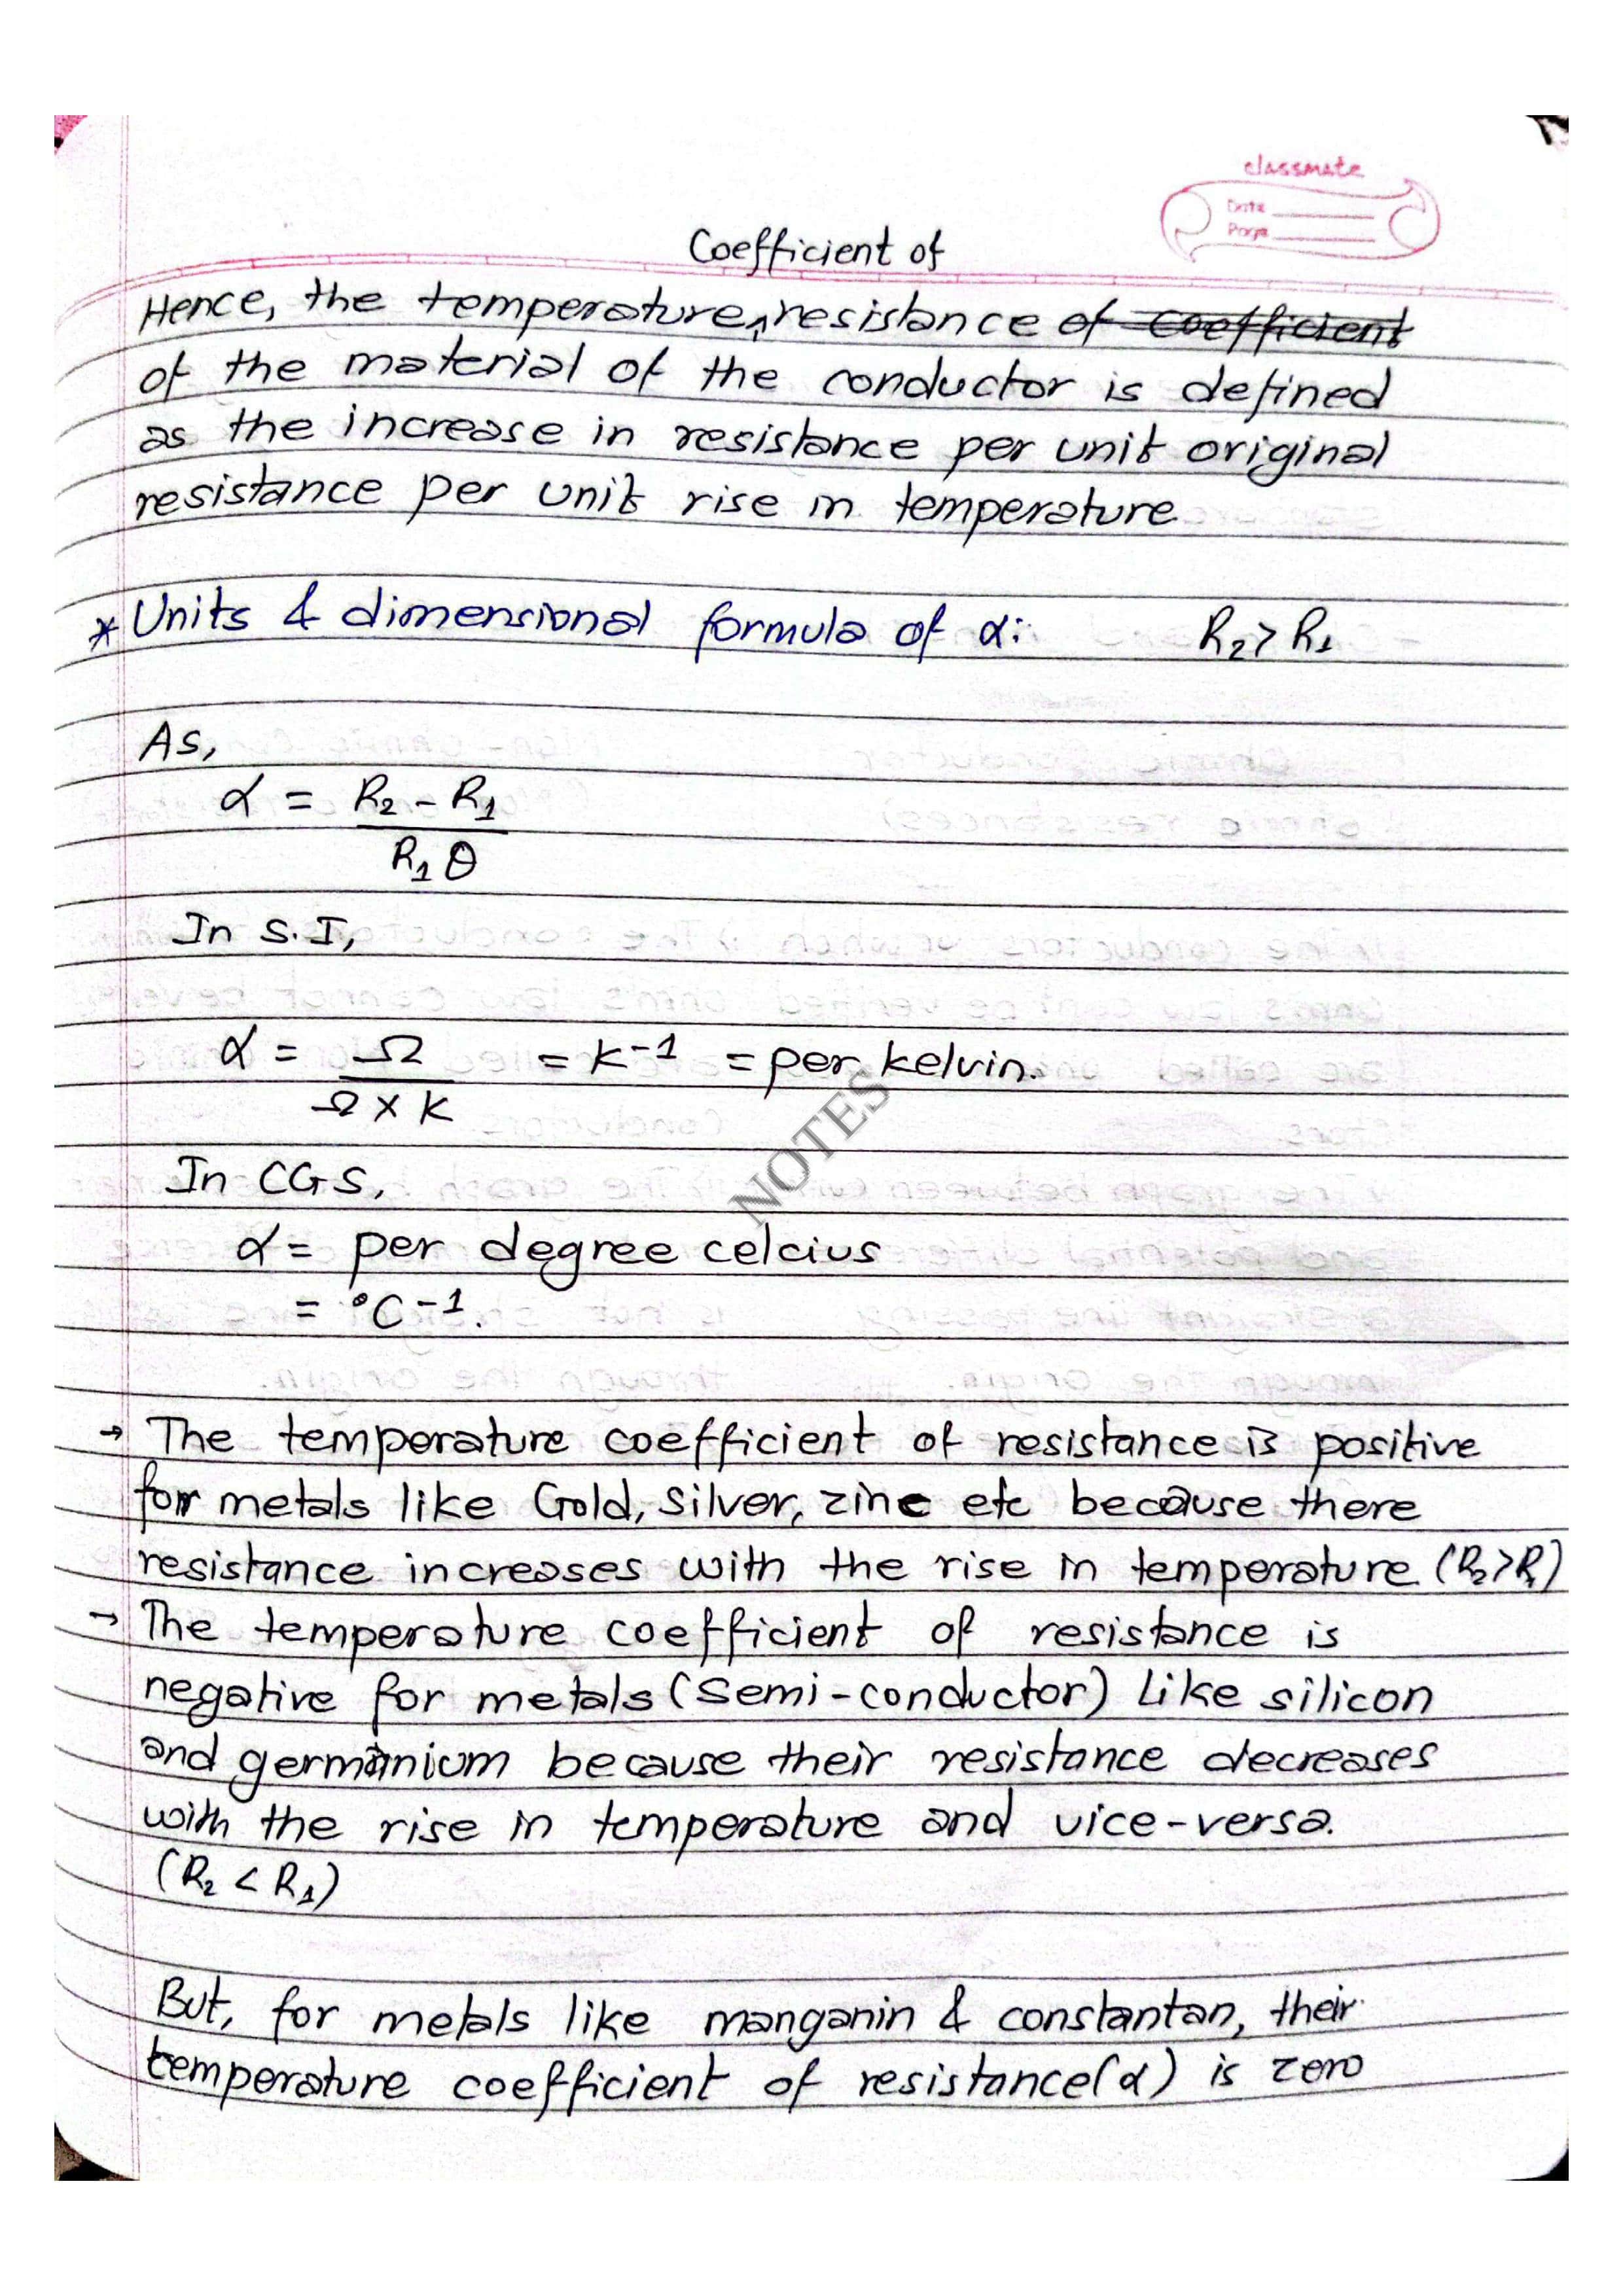 classmate
Date
Page
Coefficient of
Hence, the temperature ^ resistance of coefficient
of the material of the conductor is defined
as the increase in resistance per unit original
resistance per unit rise in temperature
* Units & dimensional formula of α: R₂> R₁
As,
α = R₂ - R₁
R₁ θ
In S.I,
α = Ω = K⁻¹ = per kelvin.
Ω × K
NOTES
In CGS,
α = per degree celcius
= °C⁻¹.
→ The temperature coefficient of resistance is positive
for metals like Gold, Silver, zinc etc because there
resistance increases with the rise in temperature (R₂>R₁)
→ The temperature coefficient of resistance is
negative for metals (Semi-conductor) Like silicon
and germanium because their resistance decreases
with the rise in temperature and vice-versa.
(R₂ < R₁)
But, for metals like manganin & constantan, their
temperature coefficient of resistance(α) is zero